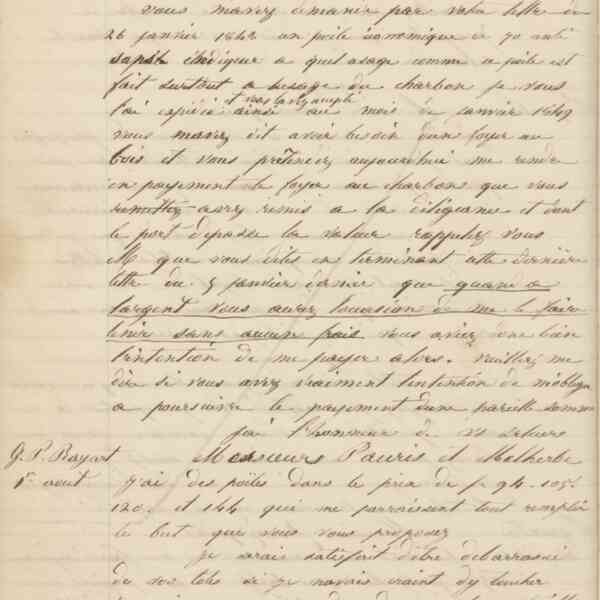 vous m'avez demandé par votre lettre du
26 janvier 1842 un poële économique de 70 cent
sans indiquer a quel usage comme ce poële est
fait surtout a l'usage du charbon je vous
l'ai expédié ainsi au mois de janvier 1849
et vous l'avez accepté
vous m'avez dit avoir besoin d'un foyer au
bois et vous prétendez aujourd'hui me rendre
en payement le foyer au charbons que vous
remettez avez remis a la diligence et dont
le port dépasse la valeur rappelez vous
M que vous dites en terminant cette dernière
lettre du 5 janvier dernier que quand a
l'argent vous aurez l'occasion de me le faire
tenir sans aucun frais vous aviez donc bien
l'intention de me payer alors. veuillez me
dire si vous avez vraiment l'intention de m'obliger
a poursuivre le payement d'une pareille somme
j'ai l'honneur de vs saluer
G. P. Bayart Messieurs Pauris et Malherbe
1er aout j'ai des poëles dans le prix de f 94. 105.
120. et 144 qui me parraissent tout remplir
le but que vous vous proposez
je serais satisfait d'être débarrassé
de vos toles si je n'avais craint d'y toucher